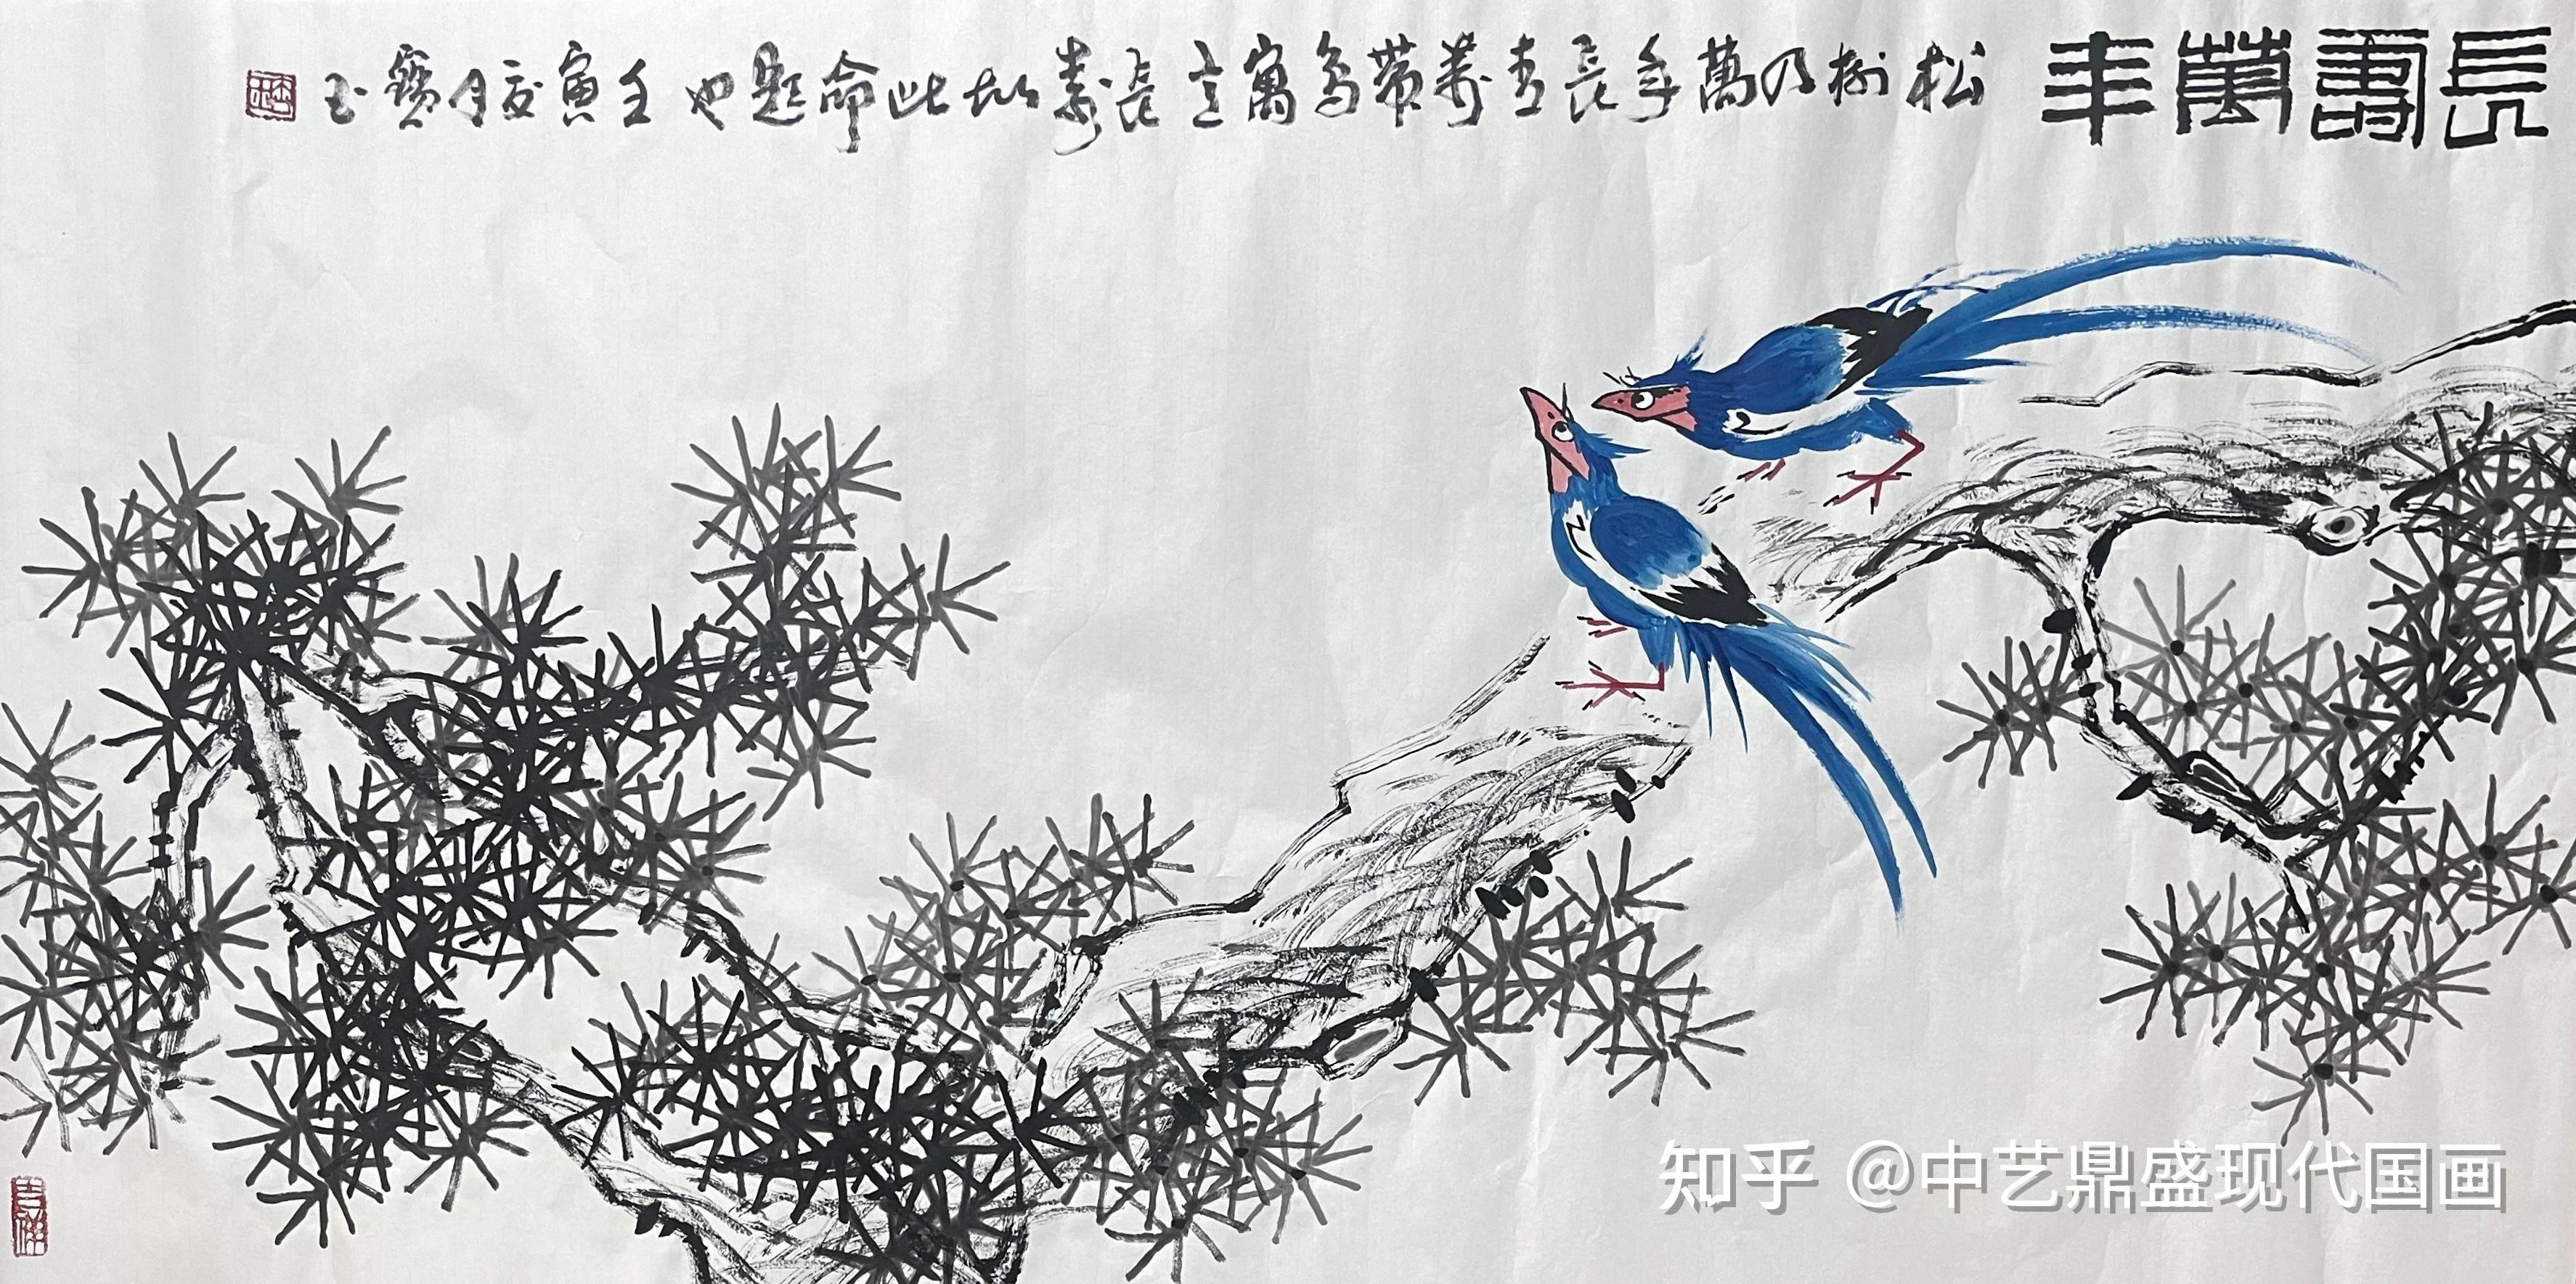 長壽萬年
松樹乃萬年長青壽带鸟寓意長壽故此命題也壬寅夏月寶玉
吉祥
知乎 @中艺鼎盛现代国画